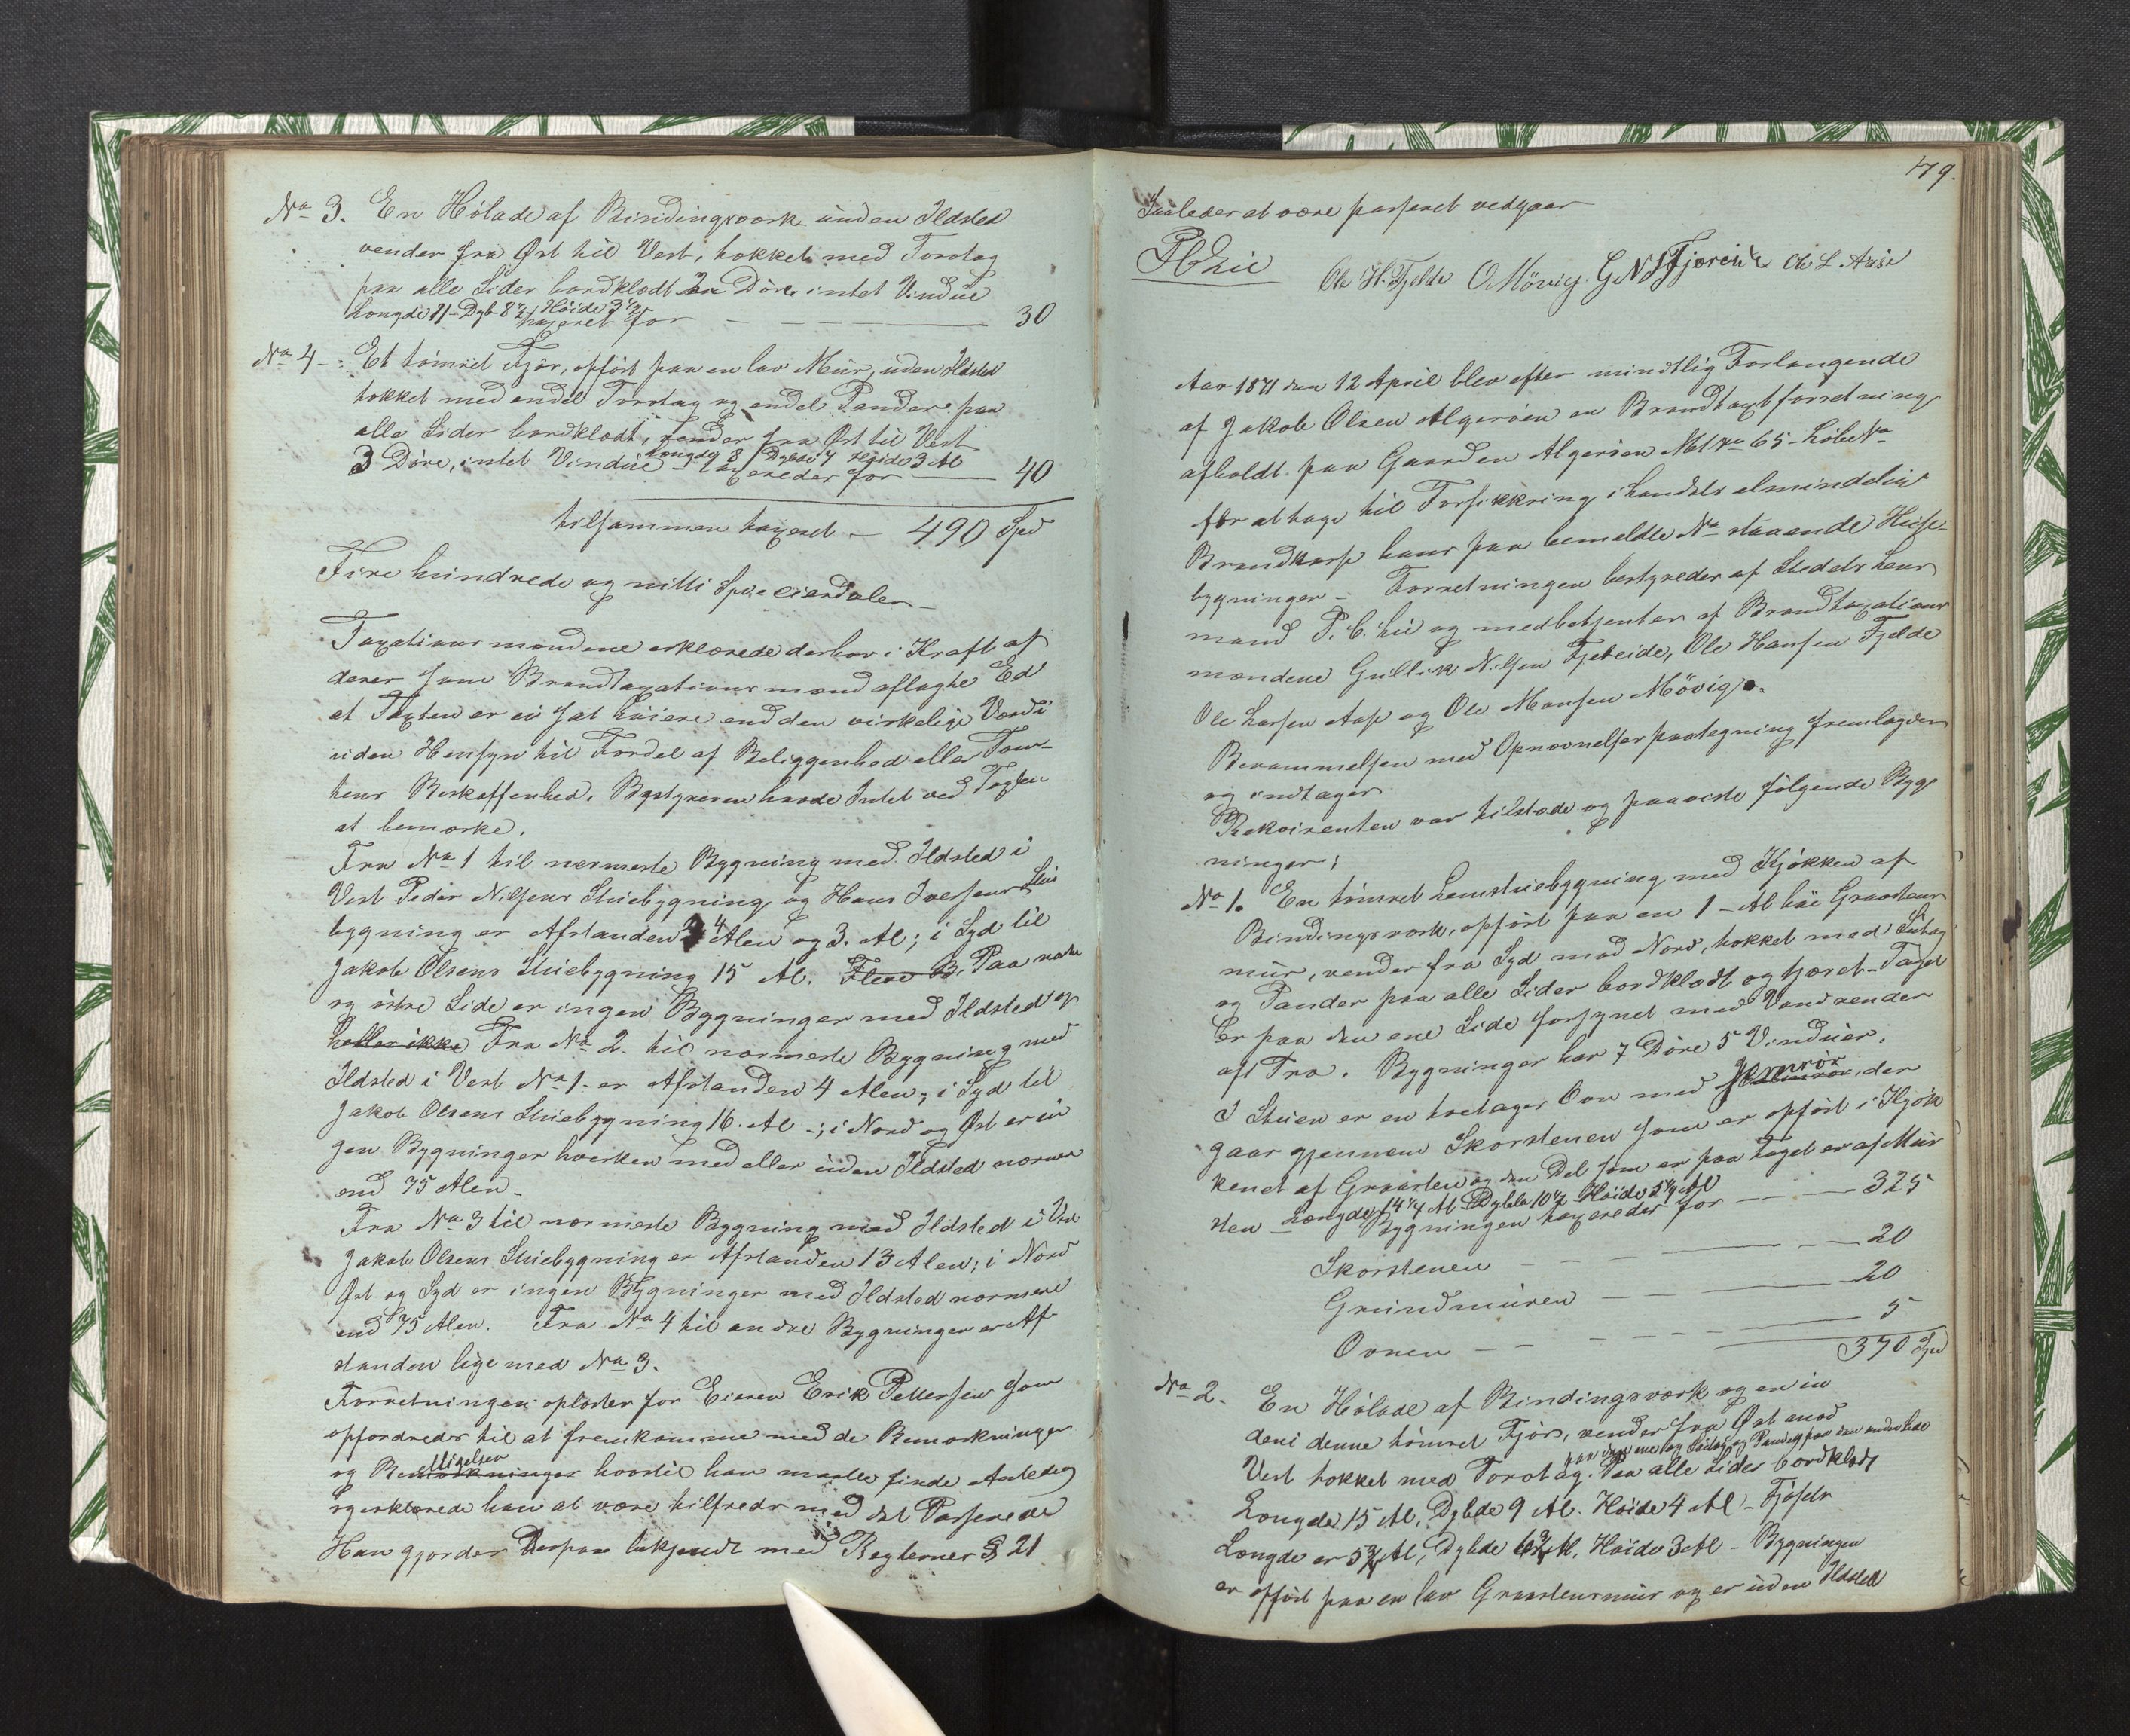 No 3. En Hölade af Bindingsværk uden Ildsted
vender fra Øst til Vest, tækket med Torvtag
paa alle Sider bordklædt 2 Döre intet Vindue
Længde 11 - Dyb 8 1/2 Høide 3 1/2
taxeret for 30
No 4 - Et tömret Fjös, opfört paa en lav Mur, uden Ildsted
tækket med endel Torvtag og endel Pander paa
alle Sider bordklædt, vender fra Øst til Vest
Længde 8 Dybde 7 Høide 3 Al
3 Döre, intet Vindue - taxeredes for 40
tilsammen taxeret - 490 Spd
Fire hundrede og nitti Speciedaler -
Taxationsmændene erklærede derhos i Kraft af
deres som Brandtaxationsmænd aflagte Ed
at Taxten er ei sat höiere end den virkelige Værdi
uden Hensyn til Fordel af Beliggenhed eller Tom-
tens Beskaffenhed. Bestyreren havde Intet ved Taxten
at bemærke.
Fra No 1 til nærmeste Bygning med Ildsted i
Vest Peder Nilsens Stuebygning og Hans Iversens Stue
bygning er Afstanden 4 Alen og 3. Al; i Syd til
Jakob Olsens Stuebygning 15 Al. Flere B. Paa
og östre Side er ingen Bygninger med Ildsted og
heller ikke Fra No 2. til nærmeste Bygning med
Ildsted i Vest No 1 - er Afstanden 4 Alen; i Syd til
Jakob Olsens Stuebygning 16. Al -; i Nord og Øst er in
gen Bygninger hverken med eller uden Ildsted nærmere
end 75 Alen -
Fra No 3 til nærmeste Bygning med Ildsted i Vest
Jakob Olsens Stuebygning er Afstanden 13 Alen; i Nord
Øst og Syd er ingen Bygninger med Ildsted nærmere
end 75 Alen. Fra No 4 til andre Bygninger er Af-
standen lige med No 3.
Forretningen oplæstes for Eieren Erik Pettersen som
opfordredes til at fremkomme med de Bemærkninger
og hvortil han maatte finde Anledng
og erklærede han at være tilfreds med det Passerede
Han gjordes derpaa bekjendt med Reglernes § 21
479.
Saaledes at være passeret vedgaar
P C Lie Ole H. Fjelde O Mövig. G N Fjæreide Ole L. Aase
Aar 1871 den 12 April blev efter mundtlig Forlangende
af Jakob Olsen Algeröen en Brandtaxtforretning
afholdt paa Gaarden Algeröen Mat No 65 - Löbe No
for at tage til Forsikkring i Landets almindelige
Brandkasse hans paa bemeldte No staaende Huse
bygninger - Forretningen bestyredes af Stedets Lens
mand P. C. Lie og medbetjentes af Brandtaxations
mændene Gullik Nilsen Fjæreide, Ole Hansen Fjelde
Ole Larsen Aase og Ole Monsen Mövig.
Berammelsen med Opnævnelsespaategning fremlagdes
og indtages
Rekvirenten var tilstede og paaviste fölgende Byg
ninger:
No 1. En tömret Lemstuebygning med Kjökken af
Bindingsværk, opfört paa en 1 - Al höi Graastens
mur, vender fra Syd mod Nord, tækket med
og Pander paa alle Sider bordklædt og tjæret - Taget
er paa den ene Side forsynet med Vandrender
af Træ. Bygninger har 7 Döre 5 Vinduer.
I Stuen er en toetages Ovn med Jernrör, der
gaar gjennem Skorstenen som er opfört i Kjök
kenet af Graasten og den Del som er paa Taget er af Mur
sten - Længde 14 1/4 Al Dybde 10 1/2 Høide 5 1/4 Al
Bygningen taxeredes for 325
Skorstenen 20
Grundmuren 20
Ovnen 5
370 Spd
No 2. En Hölade af Bindingsværk og en in
deni denne tömret Fjös, vender fra Øst mod
Vest tækket med Torvtag. Paa alle Sider bordklædt
Længde 15 Al, Dybde 9 Al. Høide 4 Al - Fjösets
Længde er 5 3/4 Al, Dybde Al, Høide 3 Al - Bygningen
er opfört paa en lav Graastensmur og er uden Ildsted